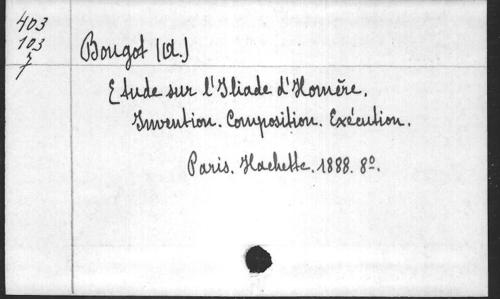 403
103
7
1
Bougot (A.)
Etude sur l'Iliade d'Homère.
Invention. Composition. Exécution.
Paris. Hachette. 1888. 8º.